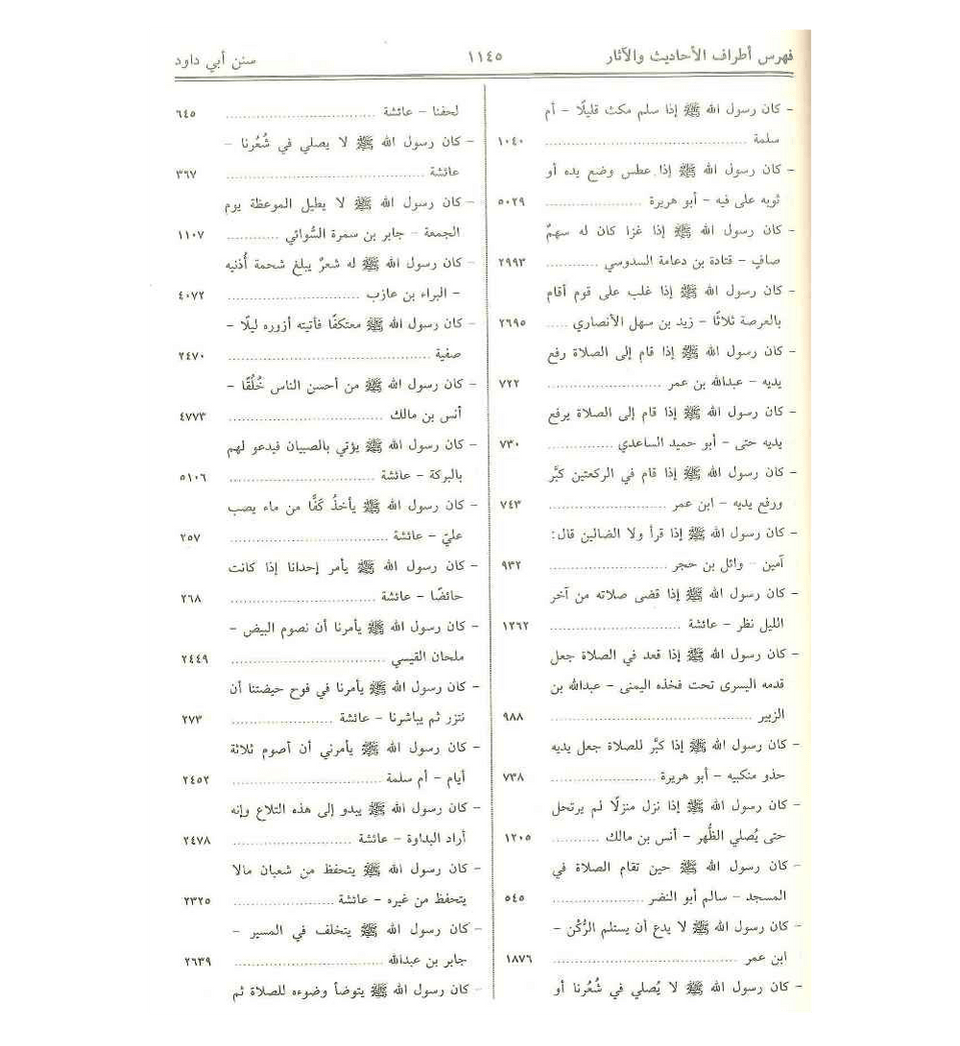 فهرس أطراف الأحاديث والآثار ١١٤٥ سنن أبي داود
- كان رسول الله ﷺ إذا سلم مكث قليلًا - أم
سلمة ........................................ ١٠٤٠
- كان رسول الله ﷺ إذا عطس وضع يده أو
ثوبه على فيه - أبو هريرة ................... ٥٠٢٩
- كان رسول الله ﷺ إذا غزا كان له سهمٌ
صافٍ - قتادة بن دعامة السدوسي ........... ٢٩٩٣
- كان رسول الله ﷺ إذا غلب على قوم أقام
بالعرصة ثلاثًا - زيد بن سهل الأنصاري ..... ٢٦٩٥
- كان رسول الله ﷺ إذا قام إلى الصلاة رفع
يديه - عبدالله بن عمر ....................... ٧٢٢
- كان رسول الله ﷺ إذا قام إلى الصلاة يرفع
يديه حتى - أبو حميد الساعدي ............. ٧٣٠
- كان رسول الله ﷺ إذا قام في الركعتين كبَّر
ورفع يديه - ابن عمر ........................ ٧٤٣
- كان رسول الله ﷺ إذا قرأ ولا الضالين قال:
آمين - وائل بن حجر ........................ ٩٣٢
- كان رسول الله ﷺ إذا قضى صلاته من آخر
الليل نظر - عائشة ........................... ١٢٦٢
- كان رسول الله ﷺ إذا قعد في الصلاة جعل
قدمه اليسرى تحت فخذه اليمنى - عبدالله بن
الزبير ........................................ ٩٨٨
- كان رسول الله ﷺ إذا كبَّر للصلاة جعل يديه
حذو منكبيه - أبو هريرة ..................... ٧٣٨
- كان رسول الله ﷺ إذا نزل منزلًا لم يرتحل
حتى يُصلي الظُّهر - أنس بن مالك .......... ١٢٠٥
- كان رسول الله ﷺ حين تقام الصلاة في
المسجد - سالم أبو النضر ................... ٥٤٥
- كان رسول الله ﷺ لا يدع أن يستلم الرُّكْن -
ابن عمر ..................................... ١٨٧٦
- كان رسول الله ﷺ لا يُصلي في شُعُرنا أو
لحفنا - عائشة ............................... ٦٤٥
- كان رسول الله ﷺ لا يصلي في شُعُرنا -
عائشة ........................................ ٣٦٧
- كان رسول الله ﷺ لا يطيل الموعظة يوم
الجمعة - جابر بن سمرة السُّوائي ........... ١١٠٧
- كان رسول الله ﷺ له شعرٌ يبلغ شحمة أُذنيه
- البراء بن عازب ........................... ٤٠٧٢
- كان رسول الله ﷺ معتكفًا فأتيته أزوره ليلًا -
صفية ........................................ ٢٤٧٠
- كان رسول الله ﷺ من أحسن الناس خُلُقًا -
أنس بن مالك ............................... ٤٧٧٣
- كان رسول الله ﷺ يؤتي بالصبيان فيدعو لهم
بالبركة - عائشة .............................. ٥١٠٦
- كان رسول الله ﷺ يأخذُ كَفًّا من ماء يصب
عليّ - عائشة ................................ ٢٥٧
- كان رسول الله ﷺ يأمر إحدانا إذا كانت
حائضًا - عائشة .............................. ٢٦٨
- كان رسول الله ﷺ يأمرنا أن نصوم البيض -
ملحان القيسي ............................... ٢٤٤٩
- كان رسول الله ﷺ يأمرنا في فوح حيضتنا أن
نتزر ثم يباشرنا - عائشة ..................... ٢٧٣
- كان رسول الله ﷺ يأمرني أن أصوم ثلاثة
أيام - أم سلمة ............................... ٢٤٥٢
- كان رسول الله ﷺ يبدو إلى هذه التلاع وإنه
أراد البداوة - عائشة ......................... ٢٤٧٨
- كان رسول الله ﷺ يتحفظ من شعبان مالا
يتحفظ من غيره - عائشة ..................... ٢٣٢٥
- كان رسول الله ﷺ يتخلف في المسير -
جابر بن عبدالله .............................. ٢٦٣٩
- كان رسول الله ﷺ يتوضأ وضوءه للصلاة ثم